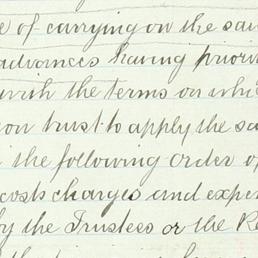 of carrying on the sa
advances having prior
with the terms on whic
on trust to apply the sa
the following order of
costs charges and expen
by the Trustees or the Re